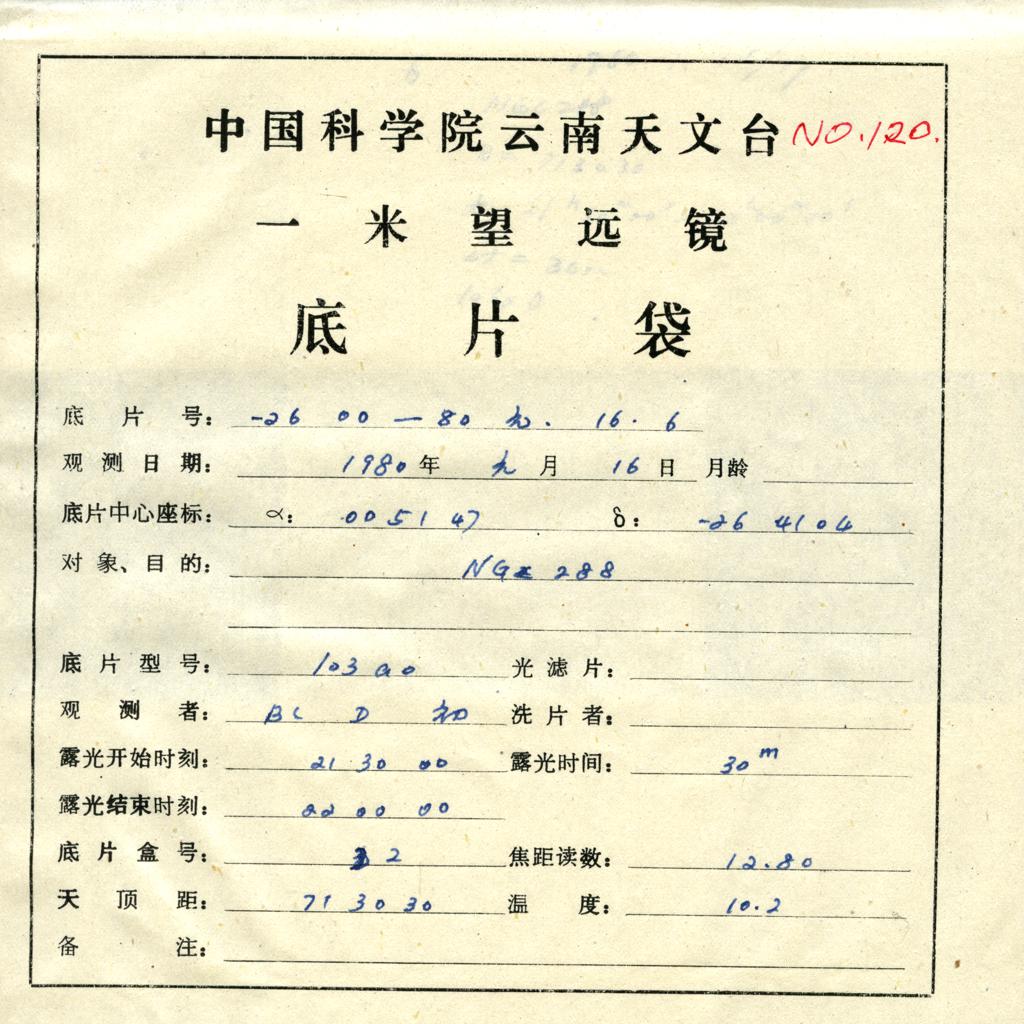 中国科学院云南天文台 NO.120.
一米望远镜
底片袋
底片号: -26 00 — 80 九. 16. 6
观测日期: 1980年 九月 16日 月龄
底片中心座标: α: 00 51 47 δ: -26 41 04
对象、目的: NGC 288
底片型号: 103aO 光滤片:
观测者: BC D 初 洗片者:
露光开始时刻: 21 30 00 露光时间: 30m
露光结束时刻: 22 00 00
底片盒号: 2 焦距读数: 12.80
天顶距: 71 30 30 温度: 10.2
备注: